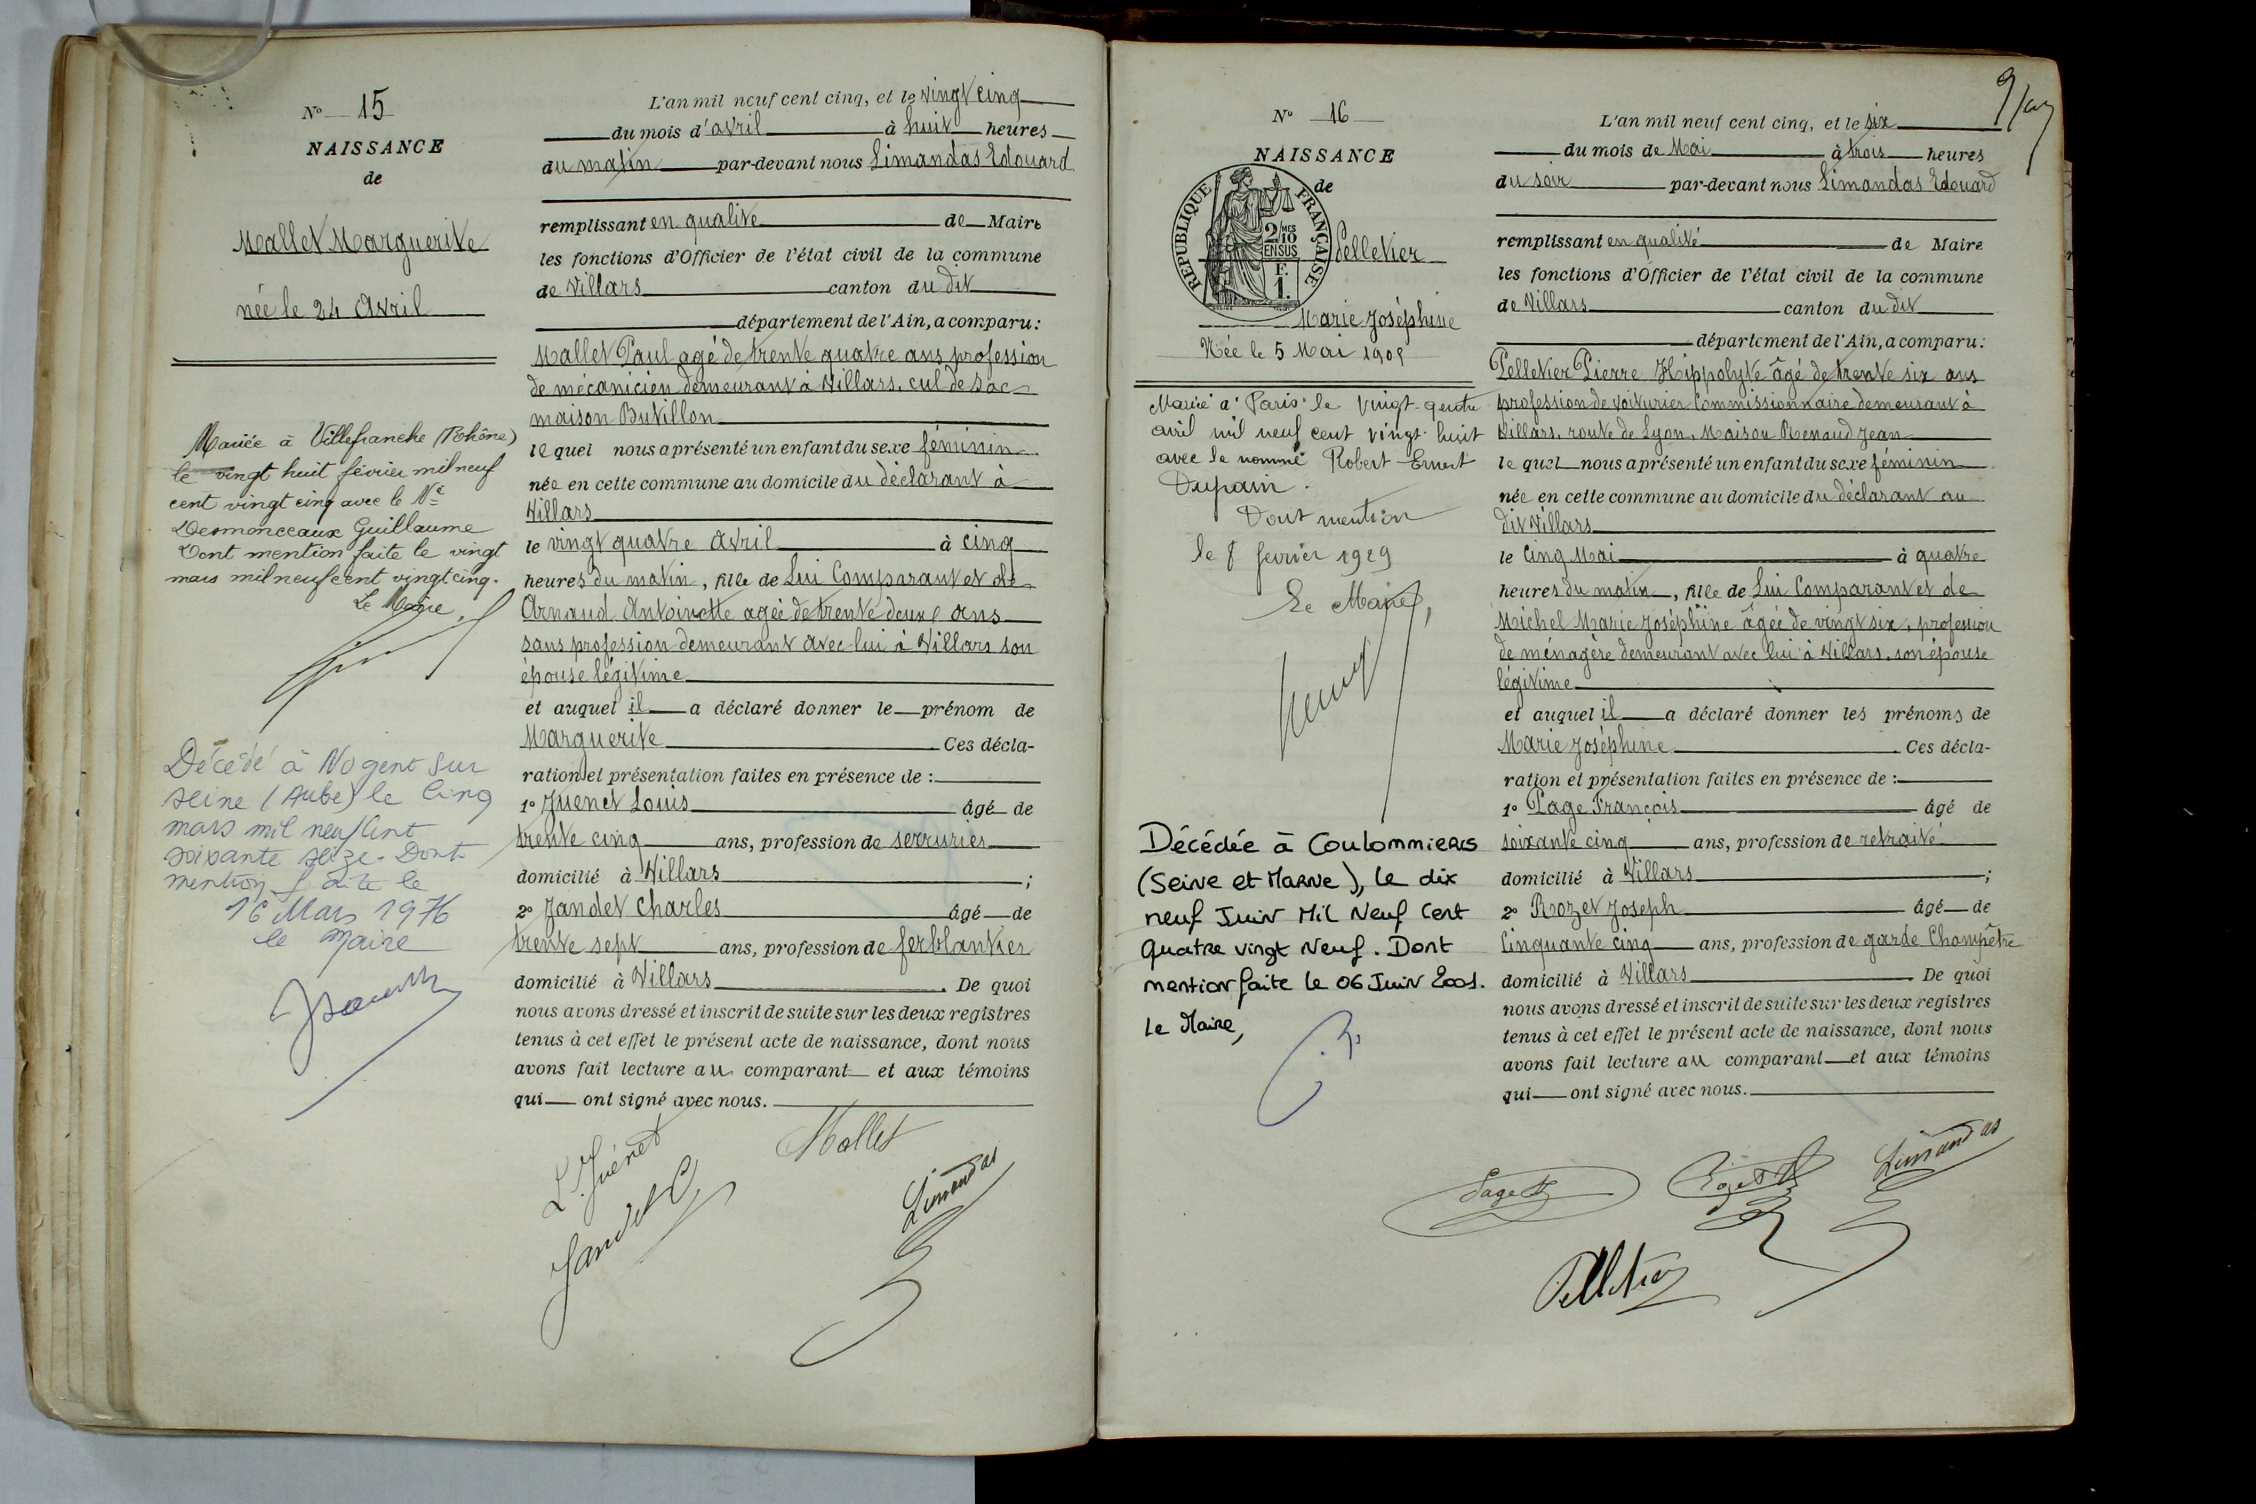 N° 15
NAISSANCE
de
Mallet Marguerite
née le 24 Avril
Mariée à Villefranche (Rhône)
le vingt huit février mil neuf
cent vingt cinq avec le Né
Desmonceaux Guillaume
Dont mention faite le vingt
mars mil neuf cent vingt cinq.
Le Maire,
Décédé à Nogent sur
seine (Aube) le Cinq
mars mil neuf Cent
soixante seize. Dont
mention faite le
16 Mars 1976
le Maire
L'an mil neuf cent cinq, et le vingt cinq
du mois d'avril à huit heures
du matin par-devant nous Limandas Edouard
remplissant en qualite de Maire
les fonctions d'Officier de l'état civil de la commune
de Villars canton du dit
département de l'Ain, a comparu:
Mallet Paul agé de trente quatre ans profession
de mécanicien demeurant à Villars, cul de sac
maison Butillon
le quel nous a présenté un enfant du sexe féminin
née en cette commune au domicile du déclarant à
Villars
le vingt quatre Avril à cinq
heures du matin, fille de Lui Comparant et de
Arnaud Antoinette agée de trente deux ans
sans profession demeurant avec lui à Villars son
épouse légitime
et auquel il a déclaré donner le prénom de
Marguerite Ces décla-
ration et présentation faites en présence de :
1° Juenet Louis âgé de
trente cinq ans, profession de serrurier
domicilié à Villars ;
2° Jandet Charles âgé de
trente sept ans, profession de ferblantier
domicilié à Villars. De quoi
nous avons dressé et inscrit de suite sur les deux registres
tenus à cet effet le présent acte de naissance, dont nous
avons fait lecture au comparant et aux témoins
qui ont signé avec nous.
L. Juenet
Mallet
Jandet C
Limandas
9
N° 16
NAISSANCE
de
REPUBLIQUE FRANÇAISE
2/10 MES
EN SUS
F.
1.
Pelletier
Marie Joséphine
Née le 5 Mai 1905
Mariée à Paris le vingt-quatre
avril mil neuf cent vingt-huit
avec le nommé Robert Ernest
Dupain.
Dont mention
le 8 fevrier 1929
Le Maire,
Décédée à Coulommiers
(Seine et Marne), le dix
neuf Juin Mil Neuf Cent
Quatre vingt Neuf. Dont
mention faite le 06 Juin 2001.
Le Maire,
L'an mil neuf cent cinq, et le six
du mois de Mai à trois heures
du soir par-devant nous Limandas Edouard
remplissant en qualité de Maire
les fonctions d'Officier de l'état civil de la commune
de Villars canton du dit
département de l'Ain, a comparu:
Pelletier Pierre Hippolyte âgé de trente six ans
profession de voiturier Commissionnaire demeurant à
Villars, route de Lyon, Maison Renaud Jean
le quel nous a présenté un enfant du sexe féminin
née en cette commune au domicile du déclarant au
dit Villars
le Cinq Mai à quatre
heures du matin, fille de Lui Comparant et de
Michel Marie Joséphine âgée de vingt six, profession
de ménagère demeurant avec lui à Villars, son épouse
légitime
et auquel il a déclaré donner les prénoms de
Marie Joséphine Ces décla-
ration et présentation faites en présence de :
1° Page François âgé de
soixante cinq ans, profession de retraité
domicilié à Villars ;
2° Rozet Joseph âgé de
Cinquante cinq ans, profession de garde Champêtre
domicilié à Villars. De quoi
nous avons dressé et inscrit de suite sur les deux registres
tenus à cet effet le présent acte de naissance, dont nous
avons fait lecture au comparant et aux témoins
qui ont signé avec nous.
Page
Rozet
Limandas
Pelletier